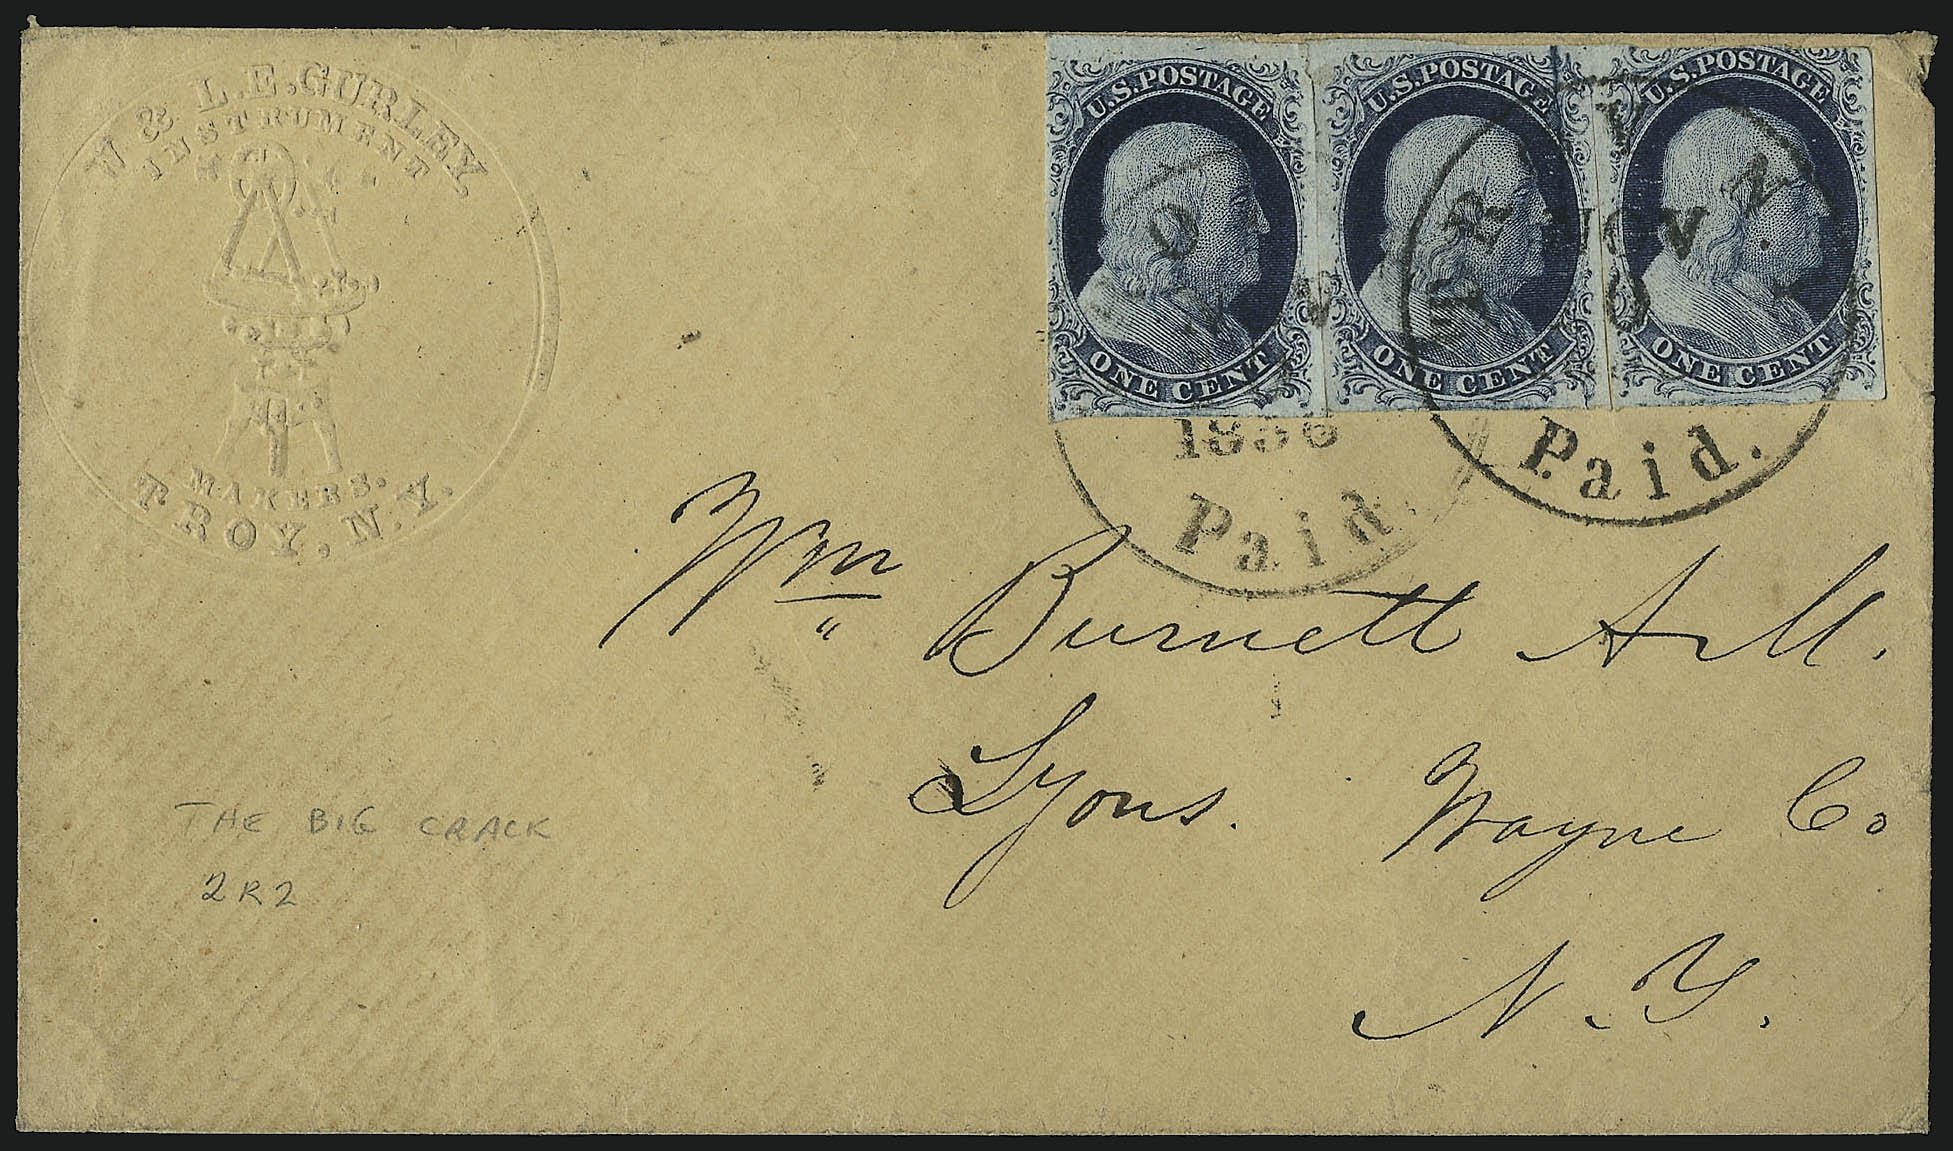 W. & L.E. GURLEY,
INSTRUMENT
MAKERS.
TROY, N.Y.
U.S. POSTAGE
ONE CENT
U.S. POSTAGE
ONE CENT
U.S. POSTAGE
ONE CENT
NOV
1856
Paid.
Paid.
Wm Burnett
Lyons. Wayne Co
N. Y.
THE BIG CRACK
2R2